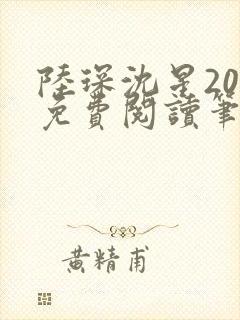 陸琛沈星20
免費閱讀筆
黃精甫